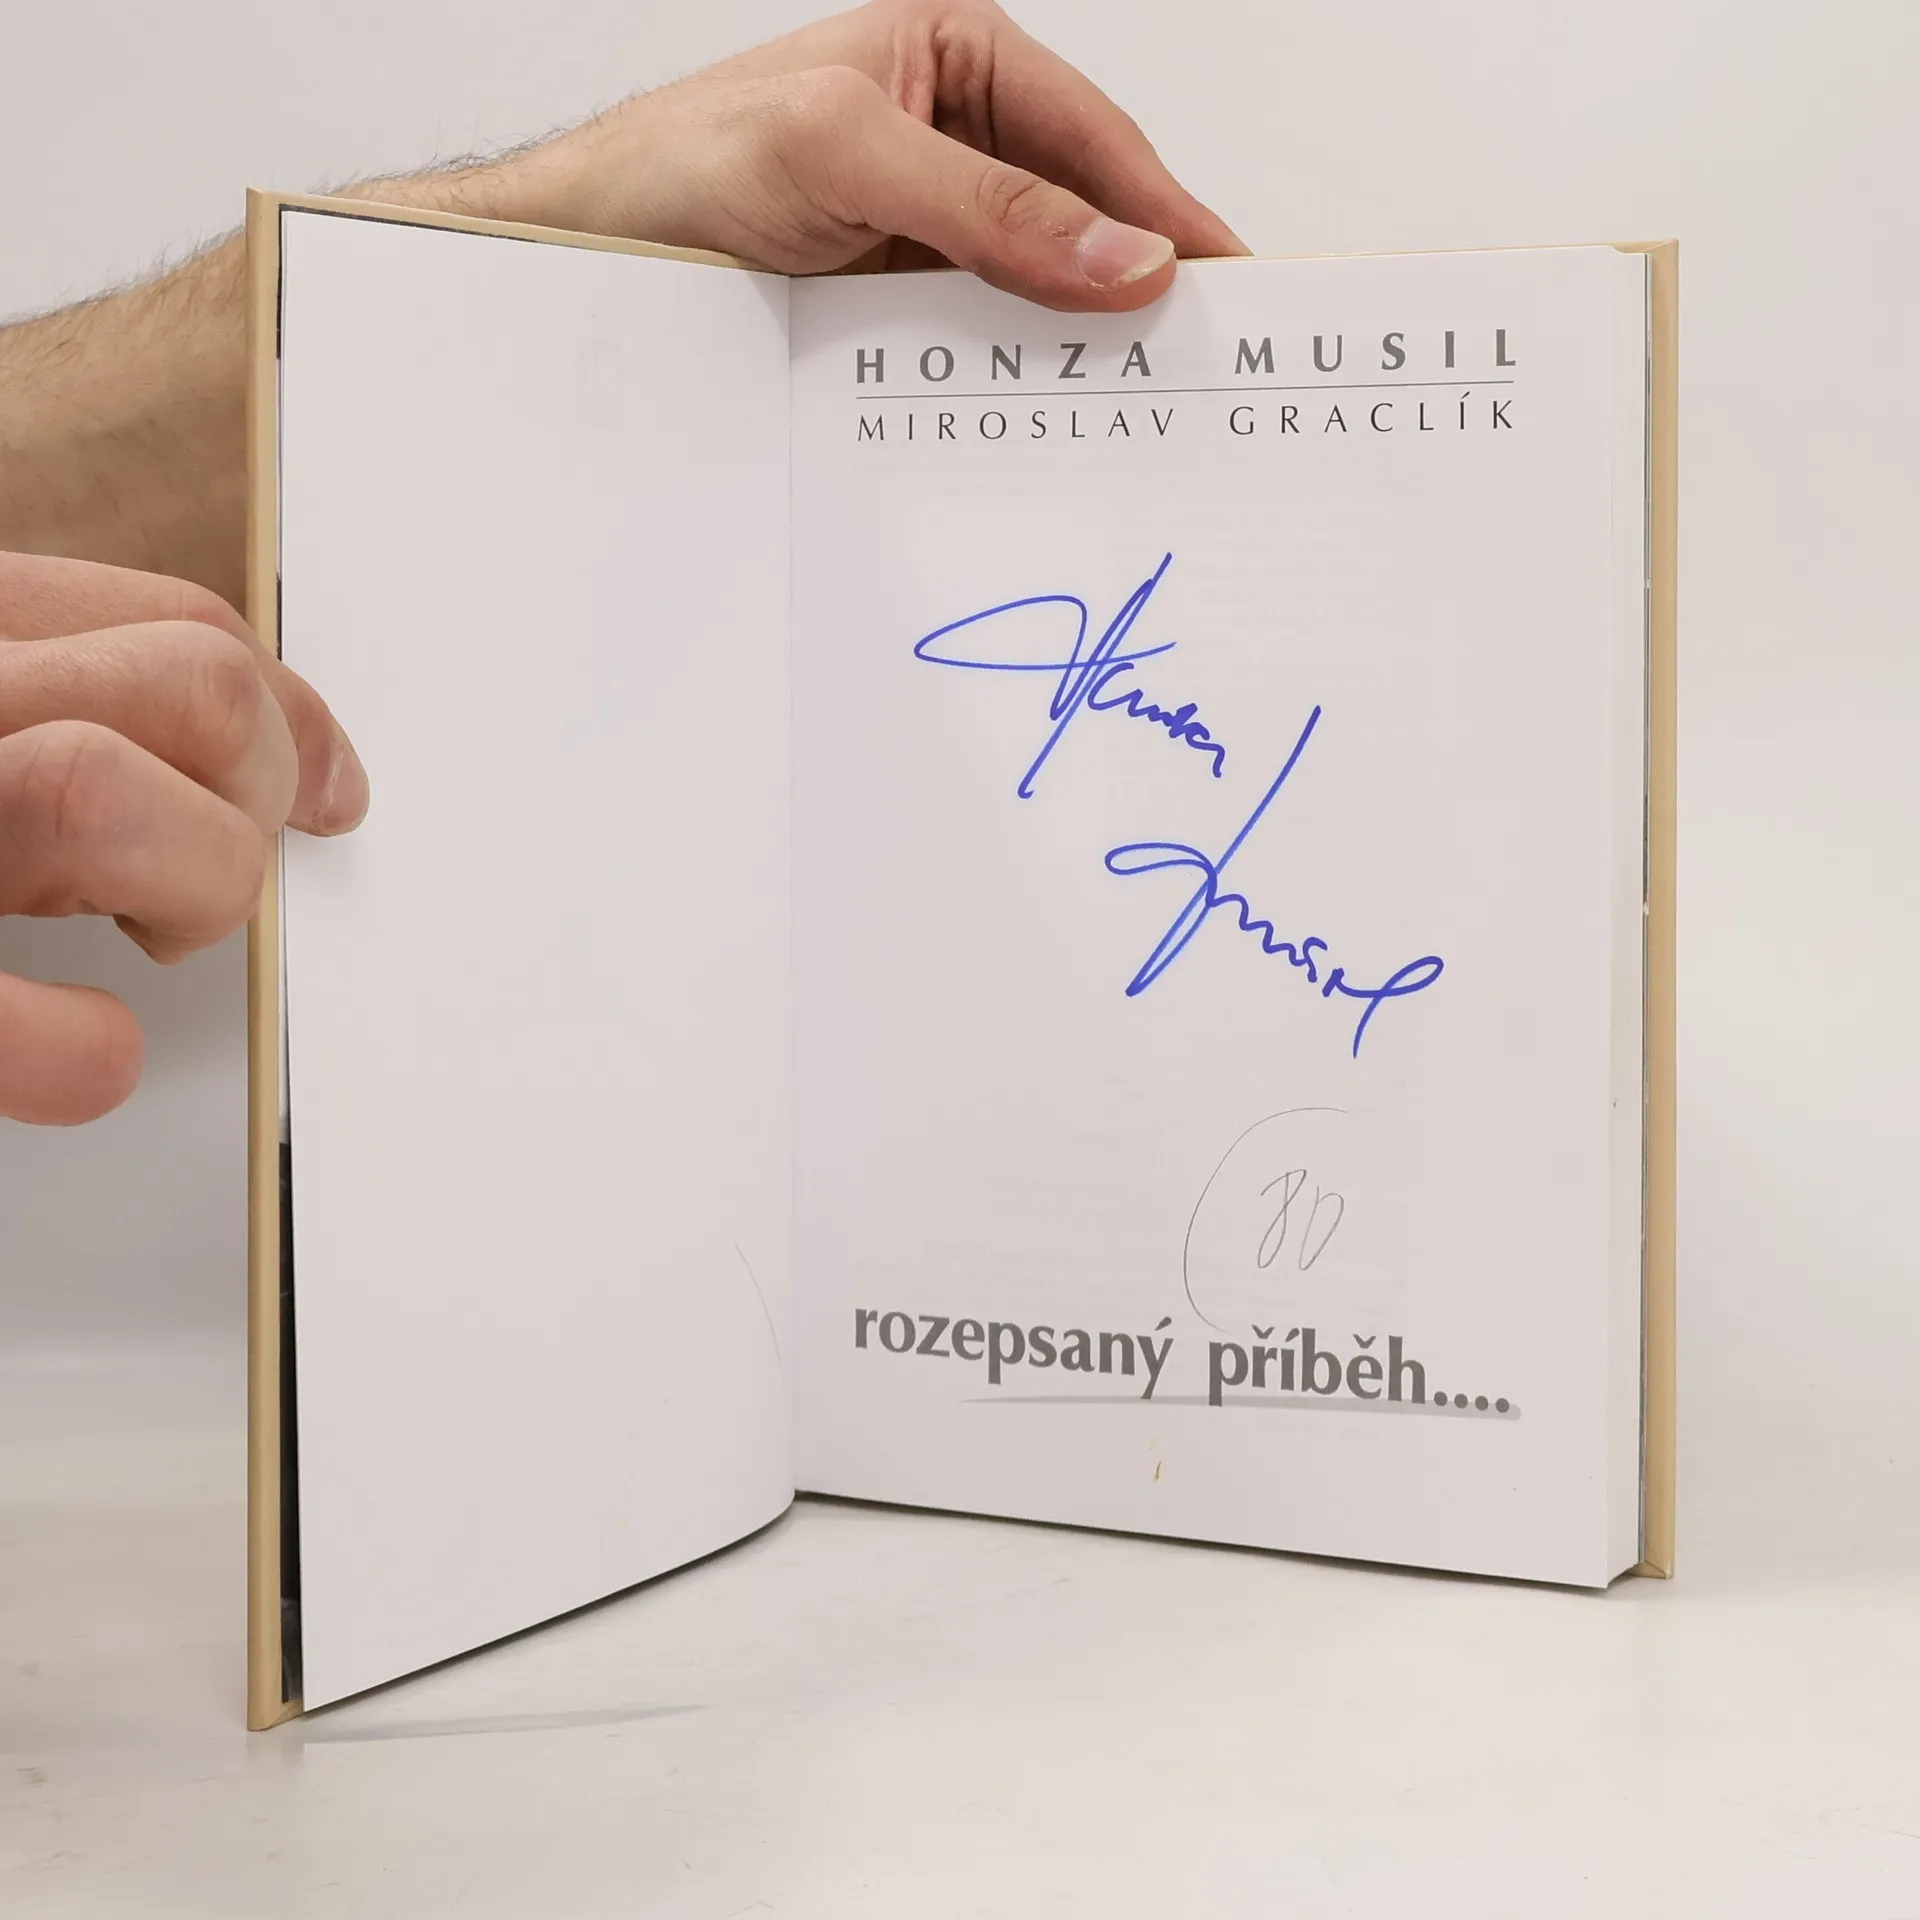 HONZA MUSIL
MIROSLAV GRACLÍK
Honza
Musil
80
rozepsaný příběh....